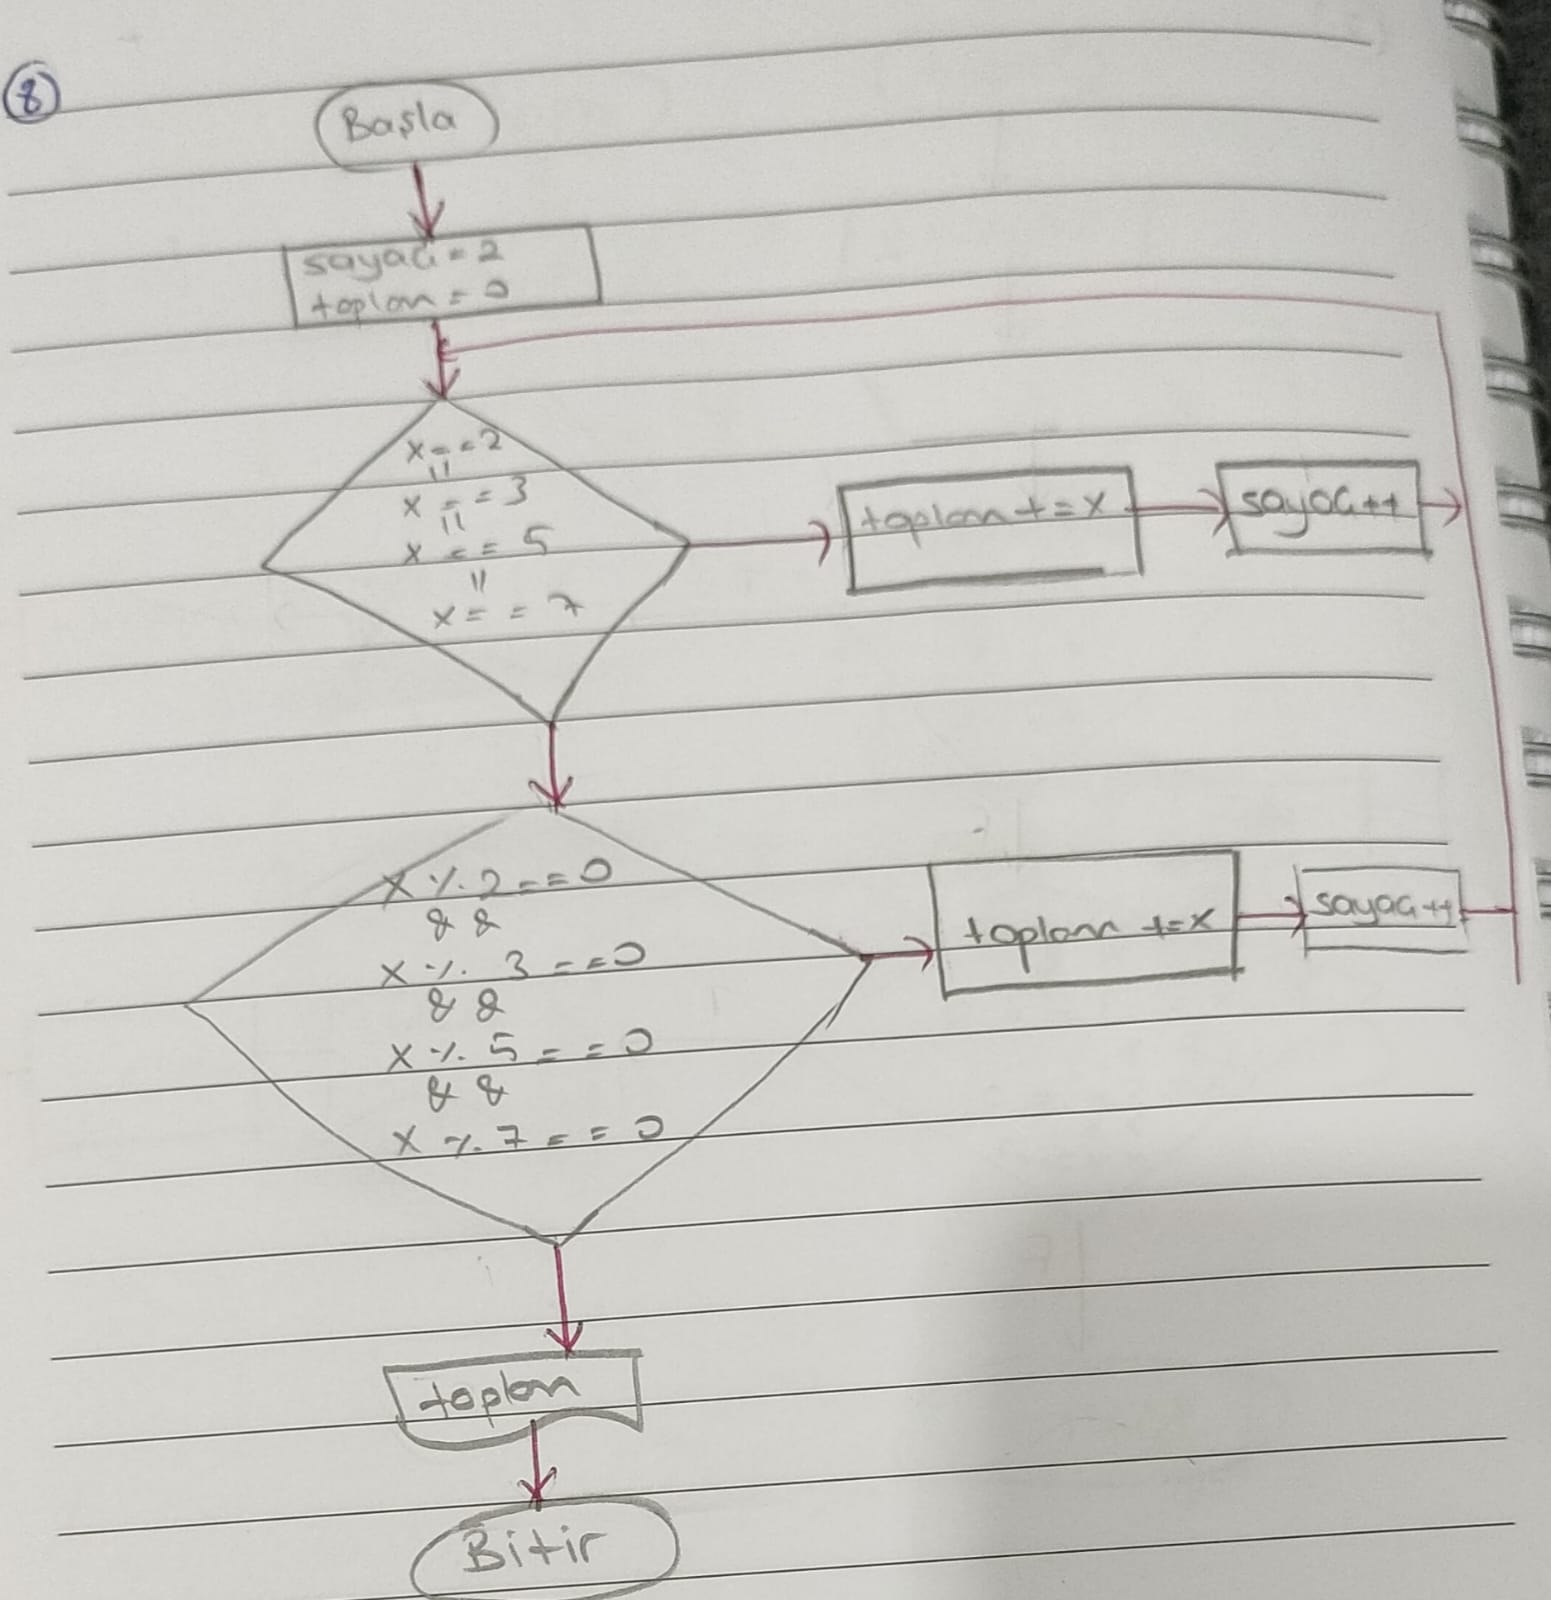 8
Başla
sayaç = 2
toplam = 0
x == 2
||
x == 3
||
x == 5
||
x == 7
toplam += x
sayaç++
x % 2 == 0
&&
x % 3 == 0
&&
x % 5 == 0
&&
x % 7 == 0
toplam += x
sayaç++
toplam
Bitir